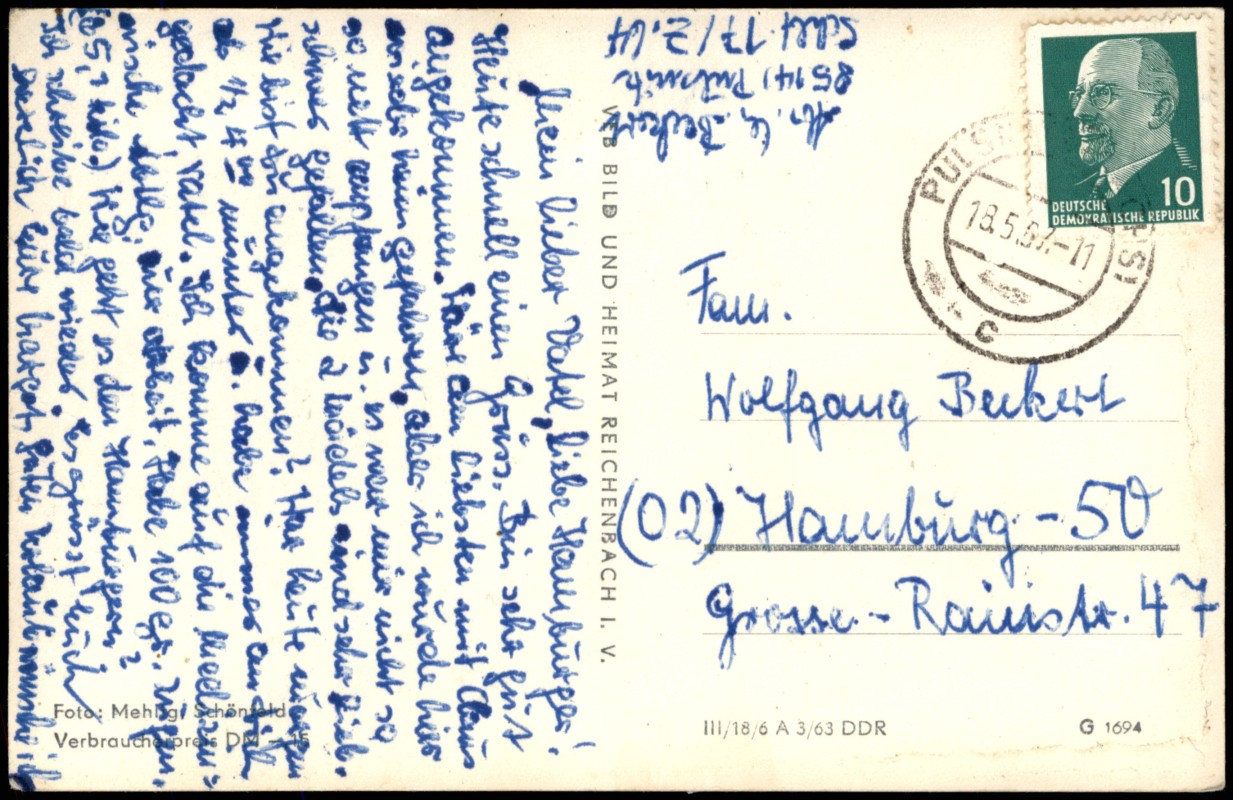 Mein lieber Vatel, liebe Hamburger!
Heute schnell einen Gruss. Bin sehr gut
angekommen. Wäre am liebsten mit Claus
wieder heim gefahren, aber ich wurde hier
so nett empfangen u. es war mir nicht so
schwer gefallen. Die 2 Mädels sind sehr lieb.
Wie bist Du angekommen? War heute morgen
ab ½ 4 munter u. habe immer an Dich
gedacht, Vatel. Ich komme auf die
Station, nur Arbeit. Habe 100 gr.
Wie geht es den Hamburgern?
Ich schreibe bald wieder. Es grüsst Euch
herzlich Eure Margot. Guten Urlaub wünsche ich
Abs. G. Beckert
8514 Pulsnitz
Schl 17/Z. 14
VEB BILD UND HEIMAT REICHENBACH I. V.
DEUTSCHE
DEMOKRATISCHE REPUBLIK
10
PULSNITZ
18.5.67.-11
C
Fam.
Wolfgang Beckert
(02) Hamburg - 50
Grosse - Rainstr. 47
Foto: Mehlig, Schönfeld
Verbraucherpreis DM -,15
III/18/6 A 3/63 DDR
G 1694